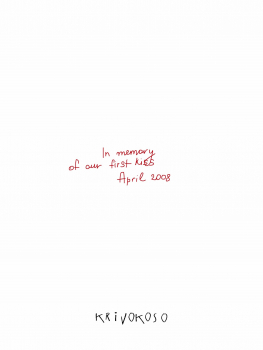 In memory
of our first kiss
April 2008
KRIVOKOSO